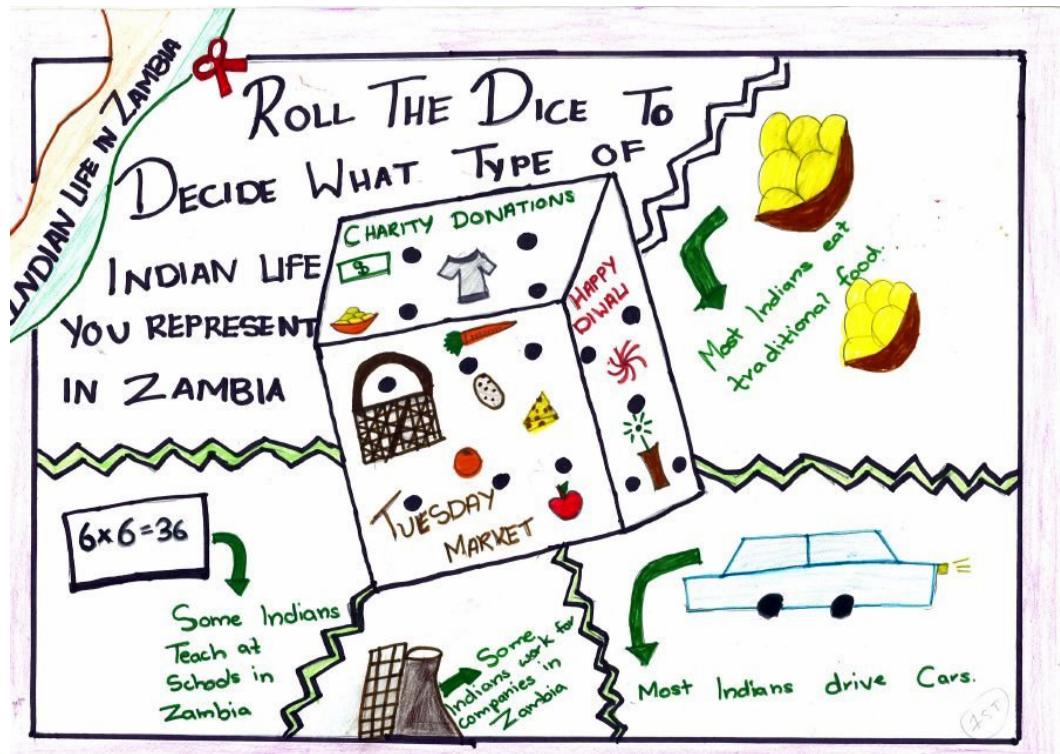 INDIAN LIFE IN ZAMBIA
ROLL THE DICE TO
DECIDE WHAT TYPE OF
INDIAN LIFE
YOU REPRESENT
IN ZAMBIA
CHARITY DONATIONS
$
HAPPY
DIWALI
TUESDAY
MARKET
Most Indians eat
traditional food.
6x6=36
Some Indians
Teach at
Schools in
Zambia
Some
Indians work for
companies in
Zambia
Most Indians drive Cars.
1ST